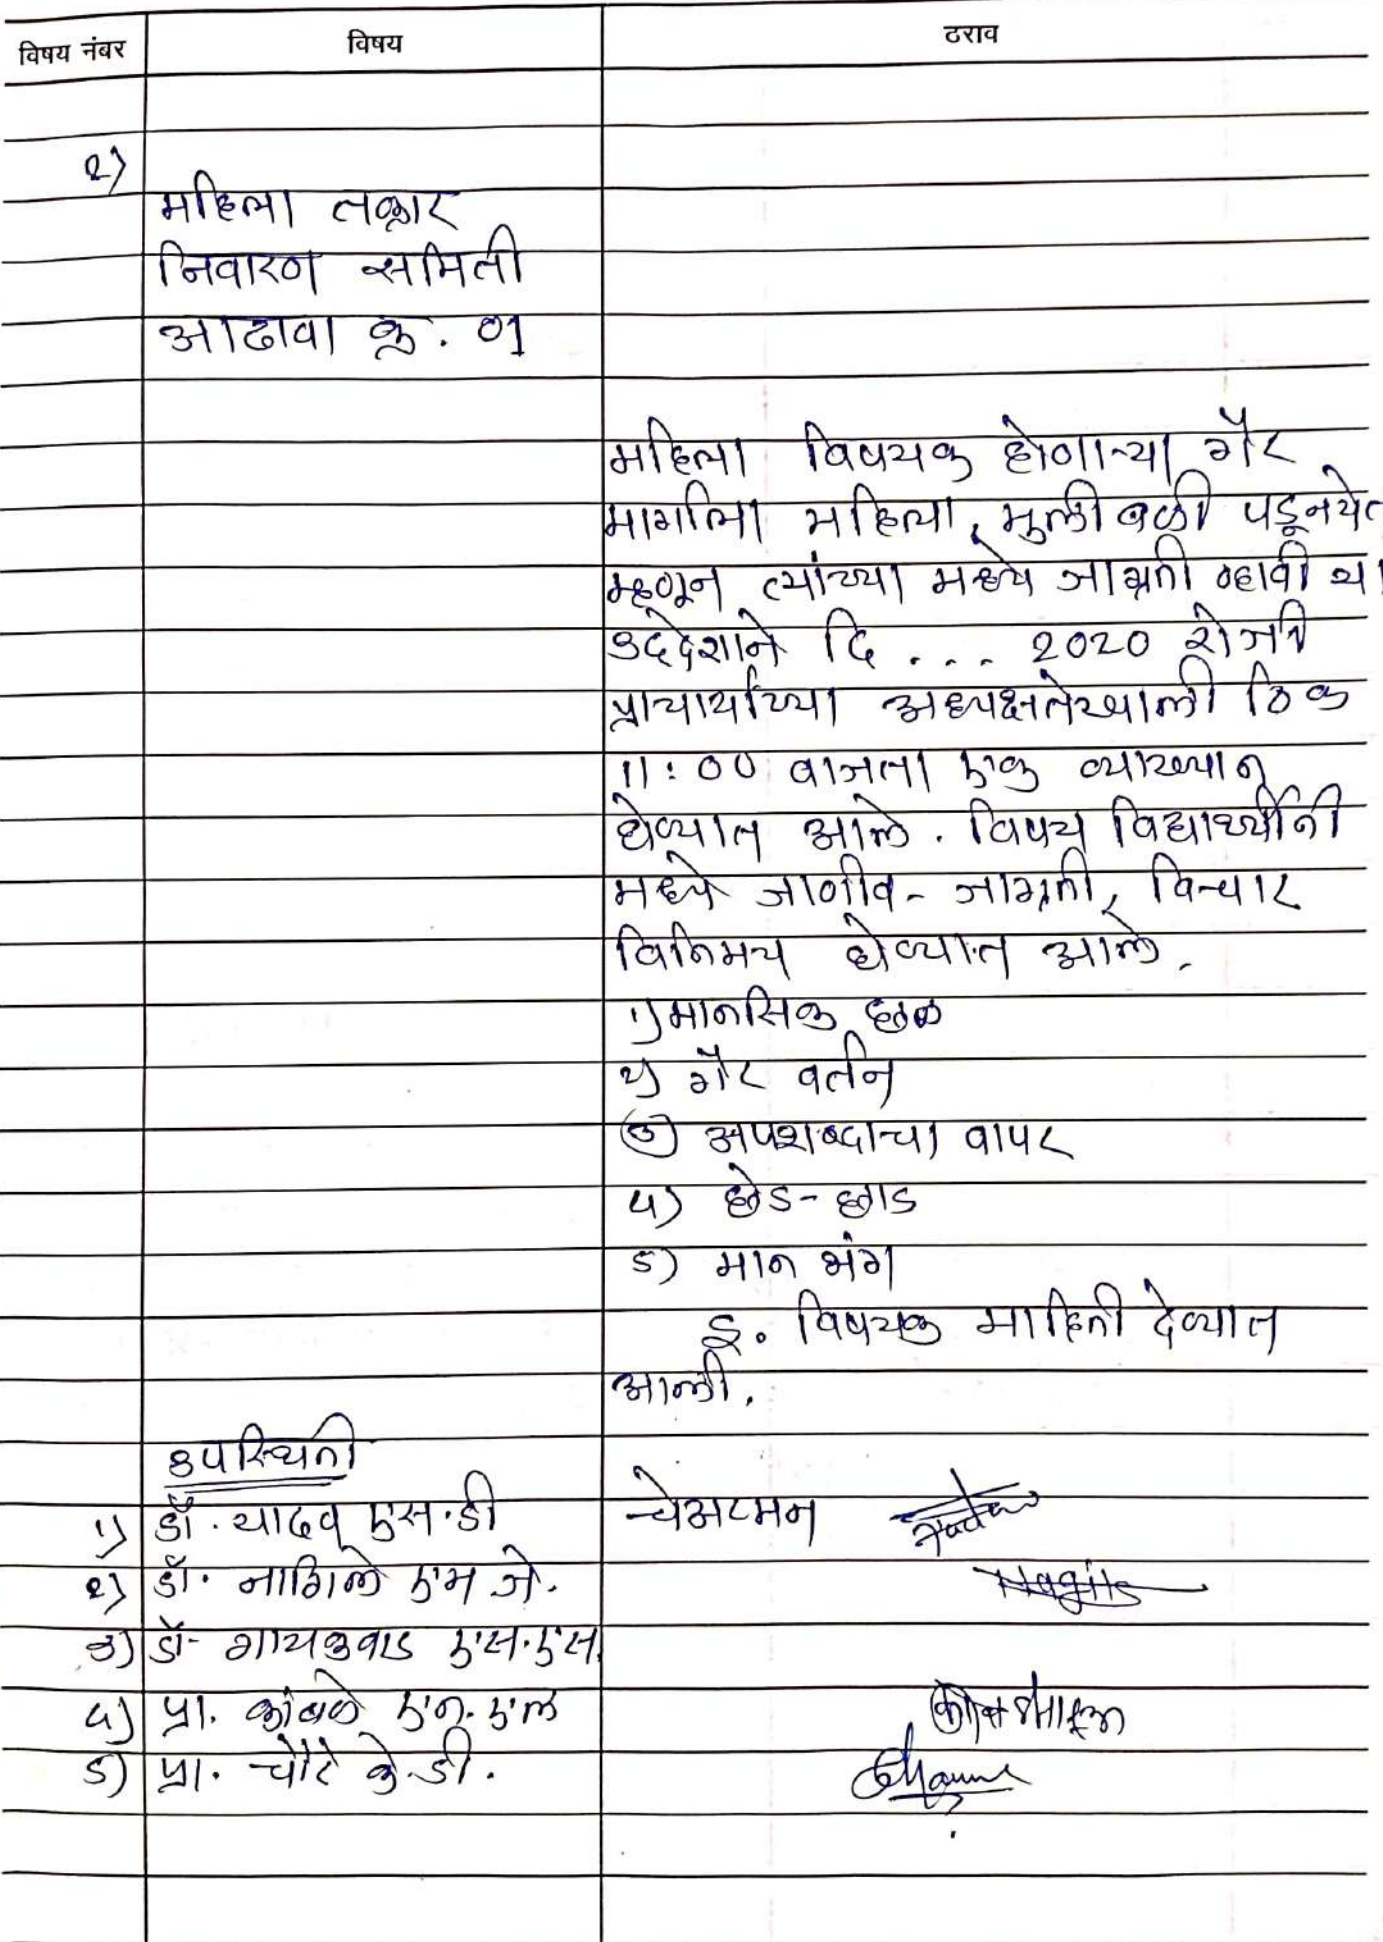 विषय नंबर विषय ठराव
२)
महिला तक्रार
निवारण समिती
आढावा क्र. 01
महिला विषयक होणाऱ्या गैर
मार्गाला महिला, मुली बळी पडूनयेत
म्हणून त्यांच्या मध्ये जाग्रती व्हावी या
उद्देशाने दि ... 2020 रोजी
प्राचार्यांच्या अध्यक्षतेखाली ठिक
11:00 वाजता एक व्याख्यान
घेण्यात आले. विषय विद्यार्थ्यीनी
मध्ये जाणीव - जागृती, विचार
विनिमय घेण्यात आले.
१) मानसिक छळ
२) गैर वर्तन
३) अपशब्दाचा वापर
४) छेड - छाड
5) मान भंग
इ. विषयक माहिती देण्यात
आली.
उपस्थिती
१) डॉ. यादव एस.डी चेअरमन
२) डॉ. नागिले एम.जे. Nagile
३) डॉ- गायकवाड एस.एस.
४) प्रा. कांबळे एन.एल
5) प्रा. चौरे के.डी.